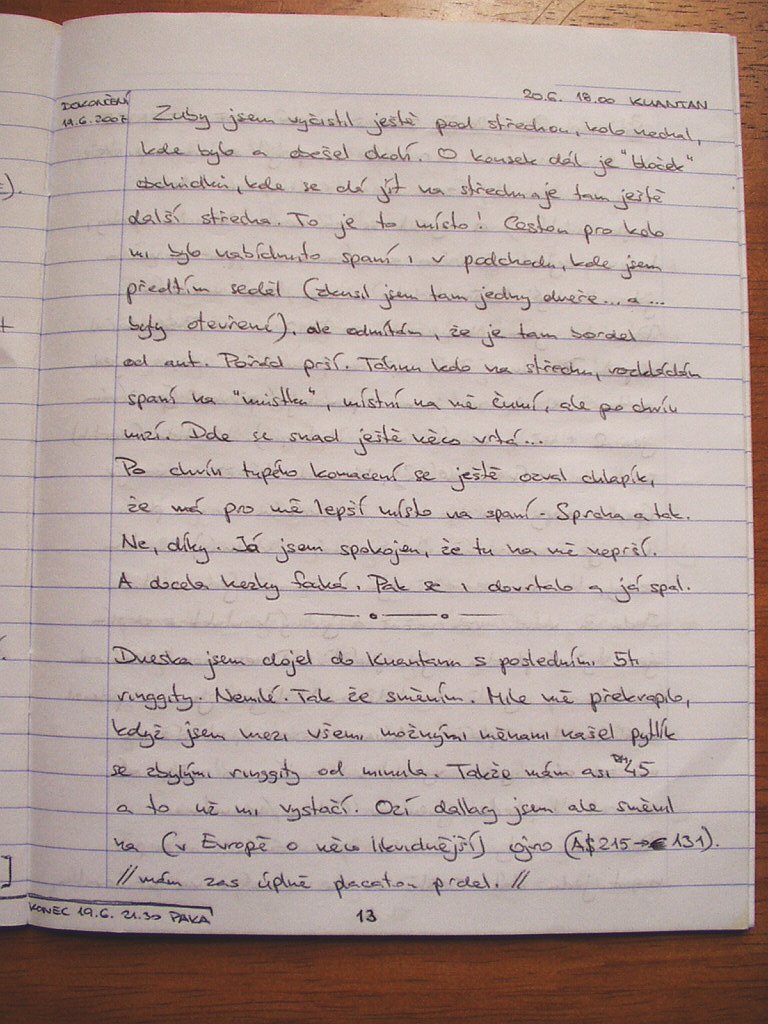 DOKONČENÍ
19.6.2007
20.6. 18.00 KUANTAN
Zuby jsem vyčistil ještě pod střechou, kolo nechal,
kde bylo a obešel okolí. O kousek dál je "bloček"
obchůdků, kde se dá jít na střechu a je tam ještě
další střecha. To je to místo! Cestou pro kolo
mi bylo nabídnuto spaní i v podchodu, kde jsem
předtím seděl (zkusil jsem tam jedny dveře... a ...
byly otevřené), ale odmítám, že je tam bordel
od aut. Pořád prší. Táhnu kolo na střechu, rozkládám
spaní na "můstku", místní na mě čumí, ale po chvíli
mizí. Dole se snad ještě něco vrtá...
Po chvíli tupého komačení se ještě ozval chlapík,
že má pro mě lepší místo na spaní - Sprcha a tak.
Ne, díky. Já jsem spokojen, že tu na mě neprší.
A docela hezky fouká. Pak se i dovrtalo a já spal.
Dneska jsem dojel do Kuantanu s posledními 5ti
ringgity. Nemilé. Tak že směním. Mile mě překvapilo,
když jsem mezi všemi možnými měnami našel pytlík
se zbylými ringgity od minula. Takže mám asi RM 45
a to už mi vystačí. Ozí dollary jsem ale směnil
na (v Evropě o něco likvidnější) ojro (A$215→€131).
//mám zas úplně placatou prdel.//
KONEC 19.6. 21.30 PAKA
13